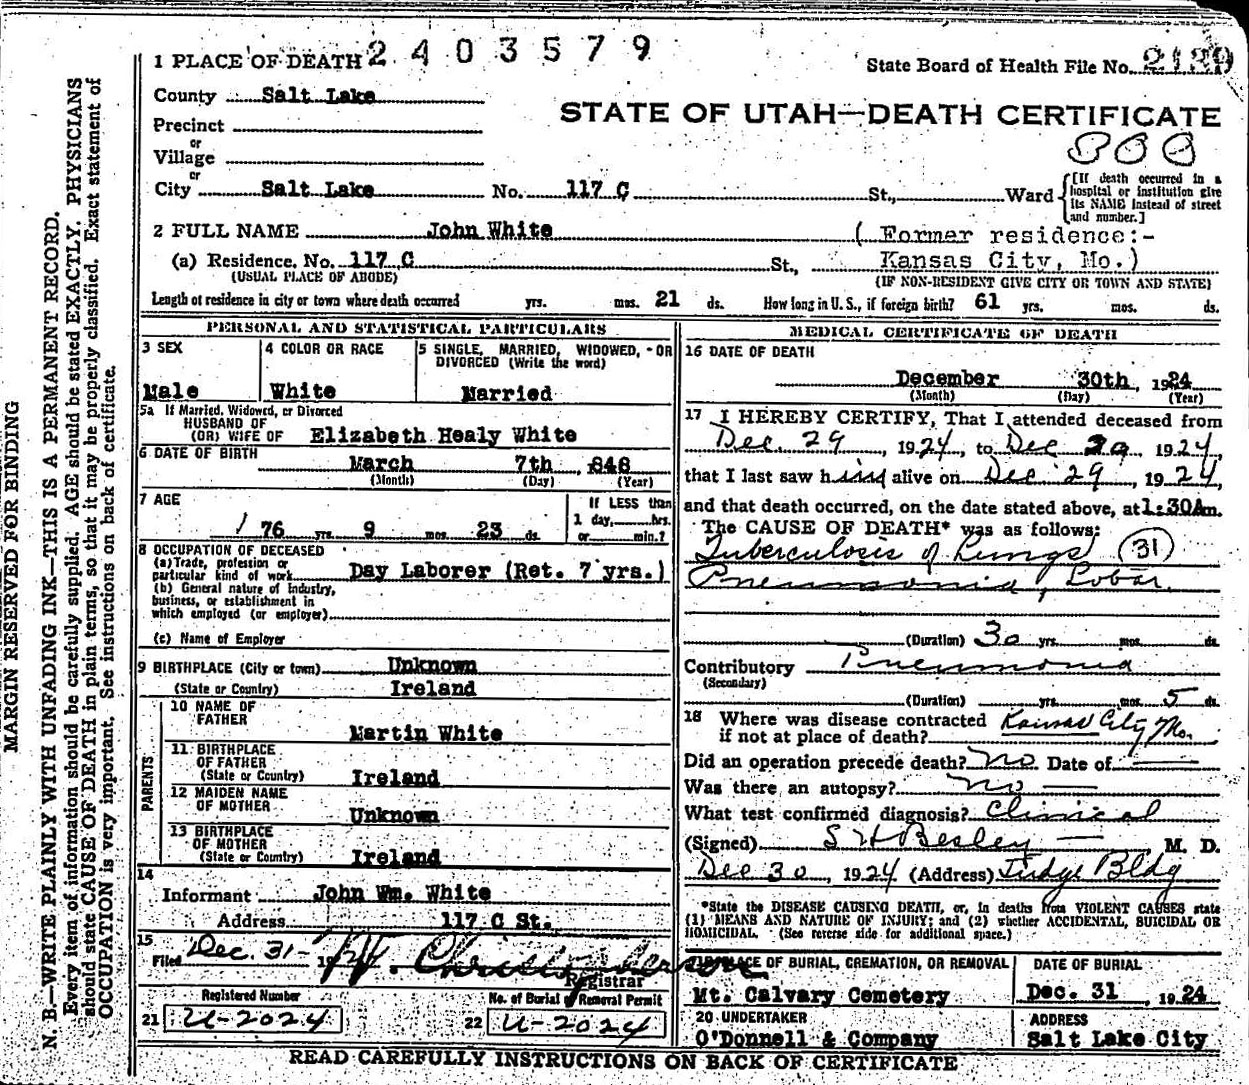 2403579
1 PLACE OF DEATH
State Board of Health File No. 2139
County Salt Lake
STATE OF UTAH—DEATH CERTIFICATE
Precinct
or
Village
or
City Salt Lake No. 117 C St., Ward
[If death occurred in a
hospital or institution give
its NAME instead of street
and number.]
2 FULL NAME John White ( Former residence:-
(a) Residence. No. 117 C St., Kansas City, Mo.)
(USUAL PLACE OF ABODE) (IF NON-RESIDENT GIVE CITY OR TOWN AND STATE)
Length of residence in city or town where death occurred yrs. mos. 21 ds. How long in U. S., if foreign birth? 61 yrs. mos. ds.
PERSONAL AND STATISTICAL PARTICULARS
3 SEX
Male
4 COLOR OR RACE
White
5 SINGLE, MARRIED, WIDOWED, OR
DIVORCED (Write the word)
Married
5a If Married, Widowed, or Divorced
HUSBAND OF
(OR) WIFE OF Elizabeth Healy White
6 DATE OF BIRTH
March 7th , 848
(Month) (Day) (Year)
7 AGE
76 yrs. 9 mos. 23 ds.
If LESS than
1 day, hrs.
or min.?
8 OCCUPATION OF DECEASED
(a) Trade, profession or
particular kind of work Day Laborer (Ret. 7 yrs.)
(b) General nature of industry,
business, or establishment in
which employed (or employer)
(c) Name of Employer
9 BIRTHPLACE (City or town) Unknown
(State or Country) Ireland
PARENTS
10 NAME OF
FATHER
Martin White
11 BIRTHPLACE
OF FATHER
(State or Country) Ireland
12 MAIDEN NAME
OF MOTHER
Unknown
13 BIRTHPLACE
OF MOTHER
(State or Country) Ireland
14
Informant John Wm. White
Address 117 C St.
15
Filed Dec. 31- 19
Registrar
Registered Number
21 U-2024
No. of Burial or Removal Permit
22 U-2024
MEDICAL CERTIFICATE OF DEATH
16 DATE OF DEATH
December 30th, 1924
(Month) (Day) (Year)
17 I HEREBY CERTIFY, That I attended deceased from
Dec. 29, 1924, to Dec 30, 1924,
that I last saw him alive on Dec 29, 1924,
and that death occurred, on the date stated above, at 1:30Am.
The CAUSE OF DEATH* was as follows:
Tuberculosis of Lungs (31)
Pneumonia, Lobar
(Duration) 30 yrs. mos. ds.
Contributory Pneumonia
(Secondary)
(Duration) yrs. mos. 5 ds.
18 Where was disease contracted Kansas City Mo.
if not at place of death?
Did an operation precede death? No. Date of —
Was there an autopsy? No —
What test confirmed diagnosis? Clinical
(Signed) S H Besley — M. D.
Dec 30, 1924 (Address) Judge Bldg
*State the DISEASE CAUSING DEATH, or, in deaths from VIOLENT CAUSES state
(1) MEANS AND NATURE OF INJURY; and (2) whether ACCIDENTAL, SUICIDAL OR
HOMICIDAL. (See reverse side for additional space.)
PLACE OF BURIAL, CREMATION, OR REMOVAL
Mt. Calvary Cemetery
DATE OF BURIAL
Dec. 31, 1924
20 UNDERTAKER
O'Donnell & Company
ADDRESS
Salt Lake City
READ CAREFULLY INSTRUCTIONS ON BACK OF CERTIFICATE
MARGIN RESERVED FOR BINDING
N. B.—WRITE PLAINLY WITH UNFADING INK—THIS IS A PERMANENT RECORD.
Every item of information should be carefully supplied. AGE should be stated EXACTLY. PHYSICIANS
should state CAUSE OF DEATH in plain terms, so that it may be properly classified. Exact statement of
OCCUPATION is very important. See instructions on back of certificate.